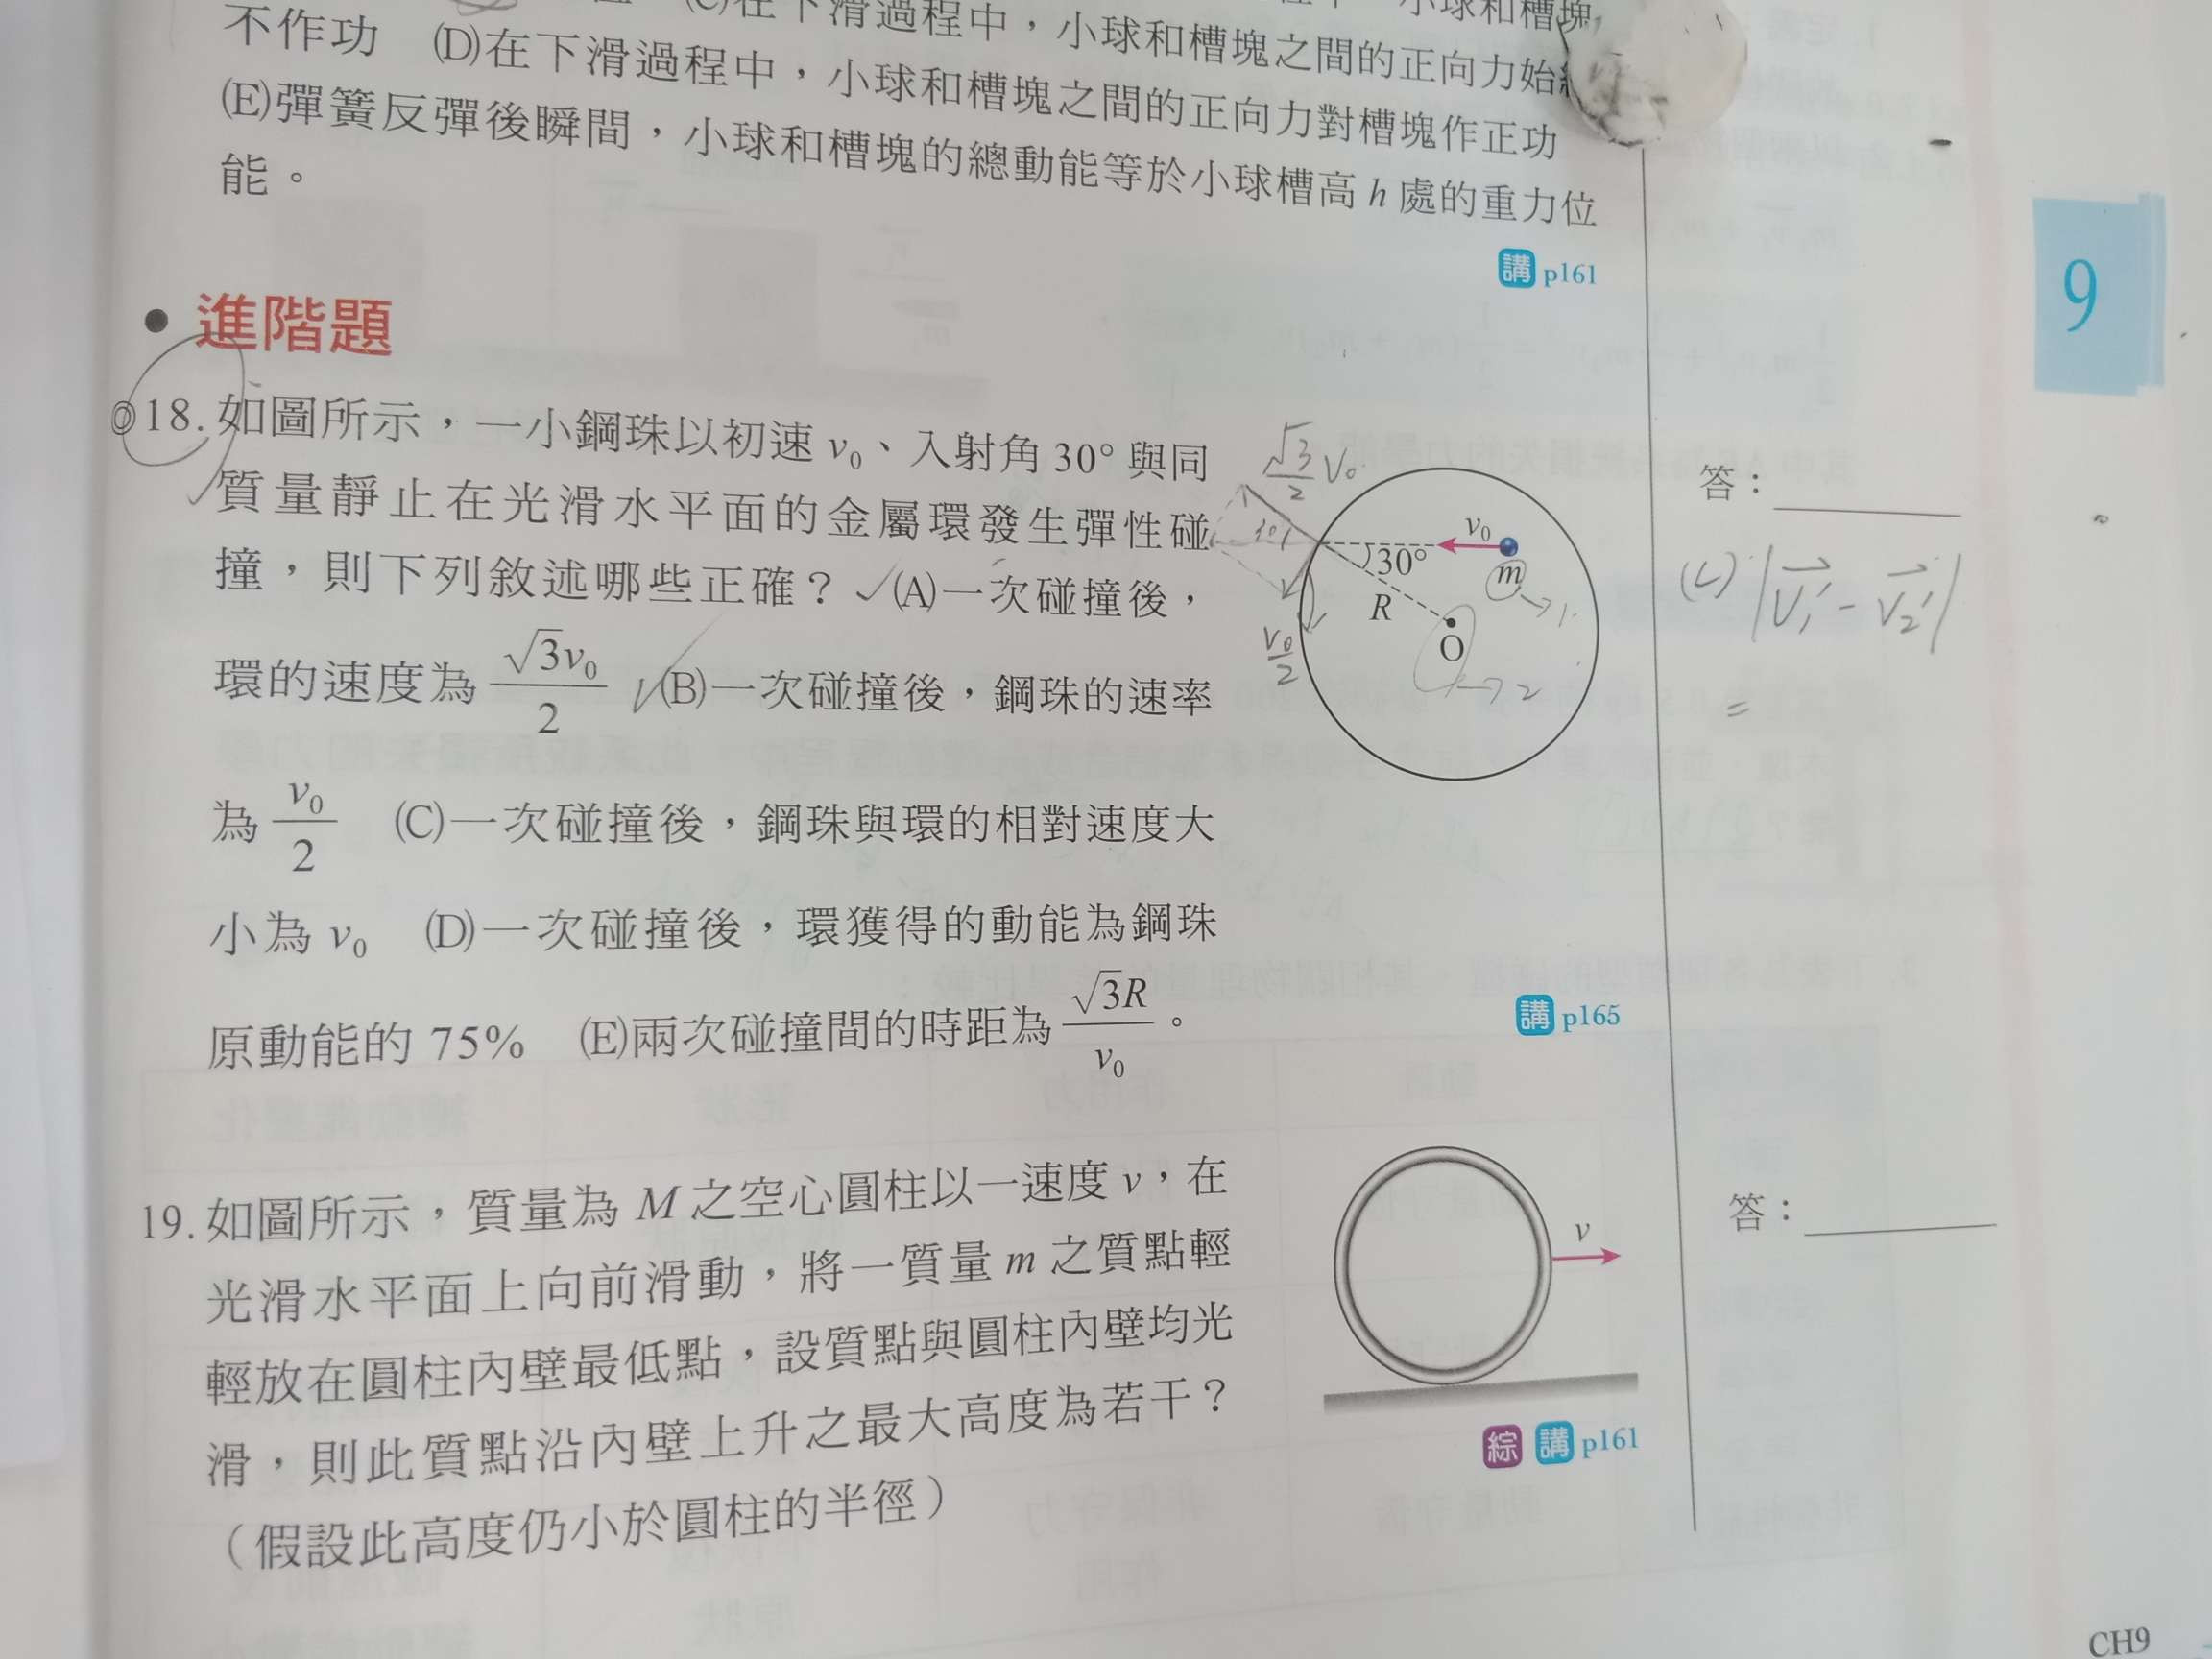 (C)在下滑過程中，小球和槽塊
不作功　(D)在下滑過程中，小球和槽塊之間的正向力始
(E)彈簧反彈後瞬間，小球和槽塊之間的正向力對槽塊作正功
小球和槽塊的總動能等於小球槽高 h 處的重力位
能。
講 p161
9
• 進階題
◎18. 如圖所示，一小鋼珠以初速 v₀、入射角 30° 與同
質量靜止在光滑水平面的金屬環發生彈性碰
撞，則下列敘述哪些正確？ ✓(A)一次碰撞後，
環的速度為 √3v₀/2 ✓(B)一次碰撞後，鋼珠的速率
為 v₀/2　(C)一次碰撞後，鋼珠與環的相對速度大
小為 v₀　(D)一次碰撞後，環獲得的動能為鋼珠
原動能的 75%　(E)兩次碰撞間的時距為 √3R/v₀。
√3/2 V₀
30°
v₀
30°
m
→1
R
O
→2
v₀/2
講 p165
答：
(C) |V₁' - V₂'|
=
19. 如圖所示，質量為 M 之空心圓柱以一速度 v，在
光滑水平面上向前滑動，將一質量 m 之質點輕
輕放在圓柱內壁最低點，設質點與圓柱內壁均光
滑，則此質點沿內壁上升之最大高度為若干？
（假設此高度仍小於圓柱的半徑）
v
綜 講 p161
答：
CH9